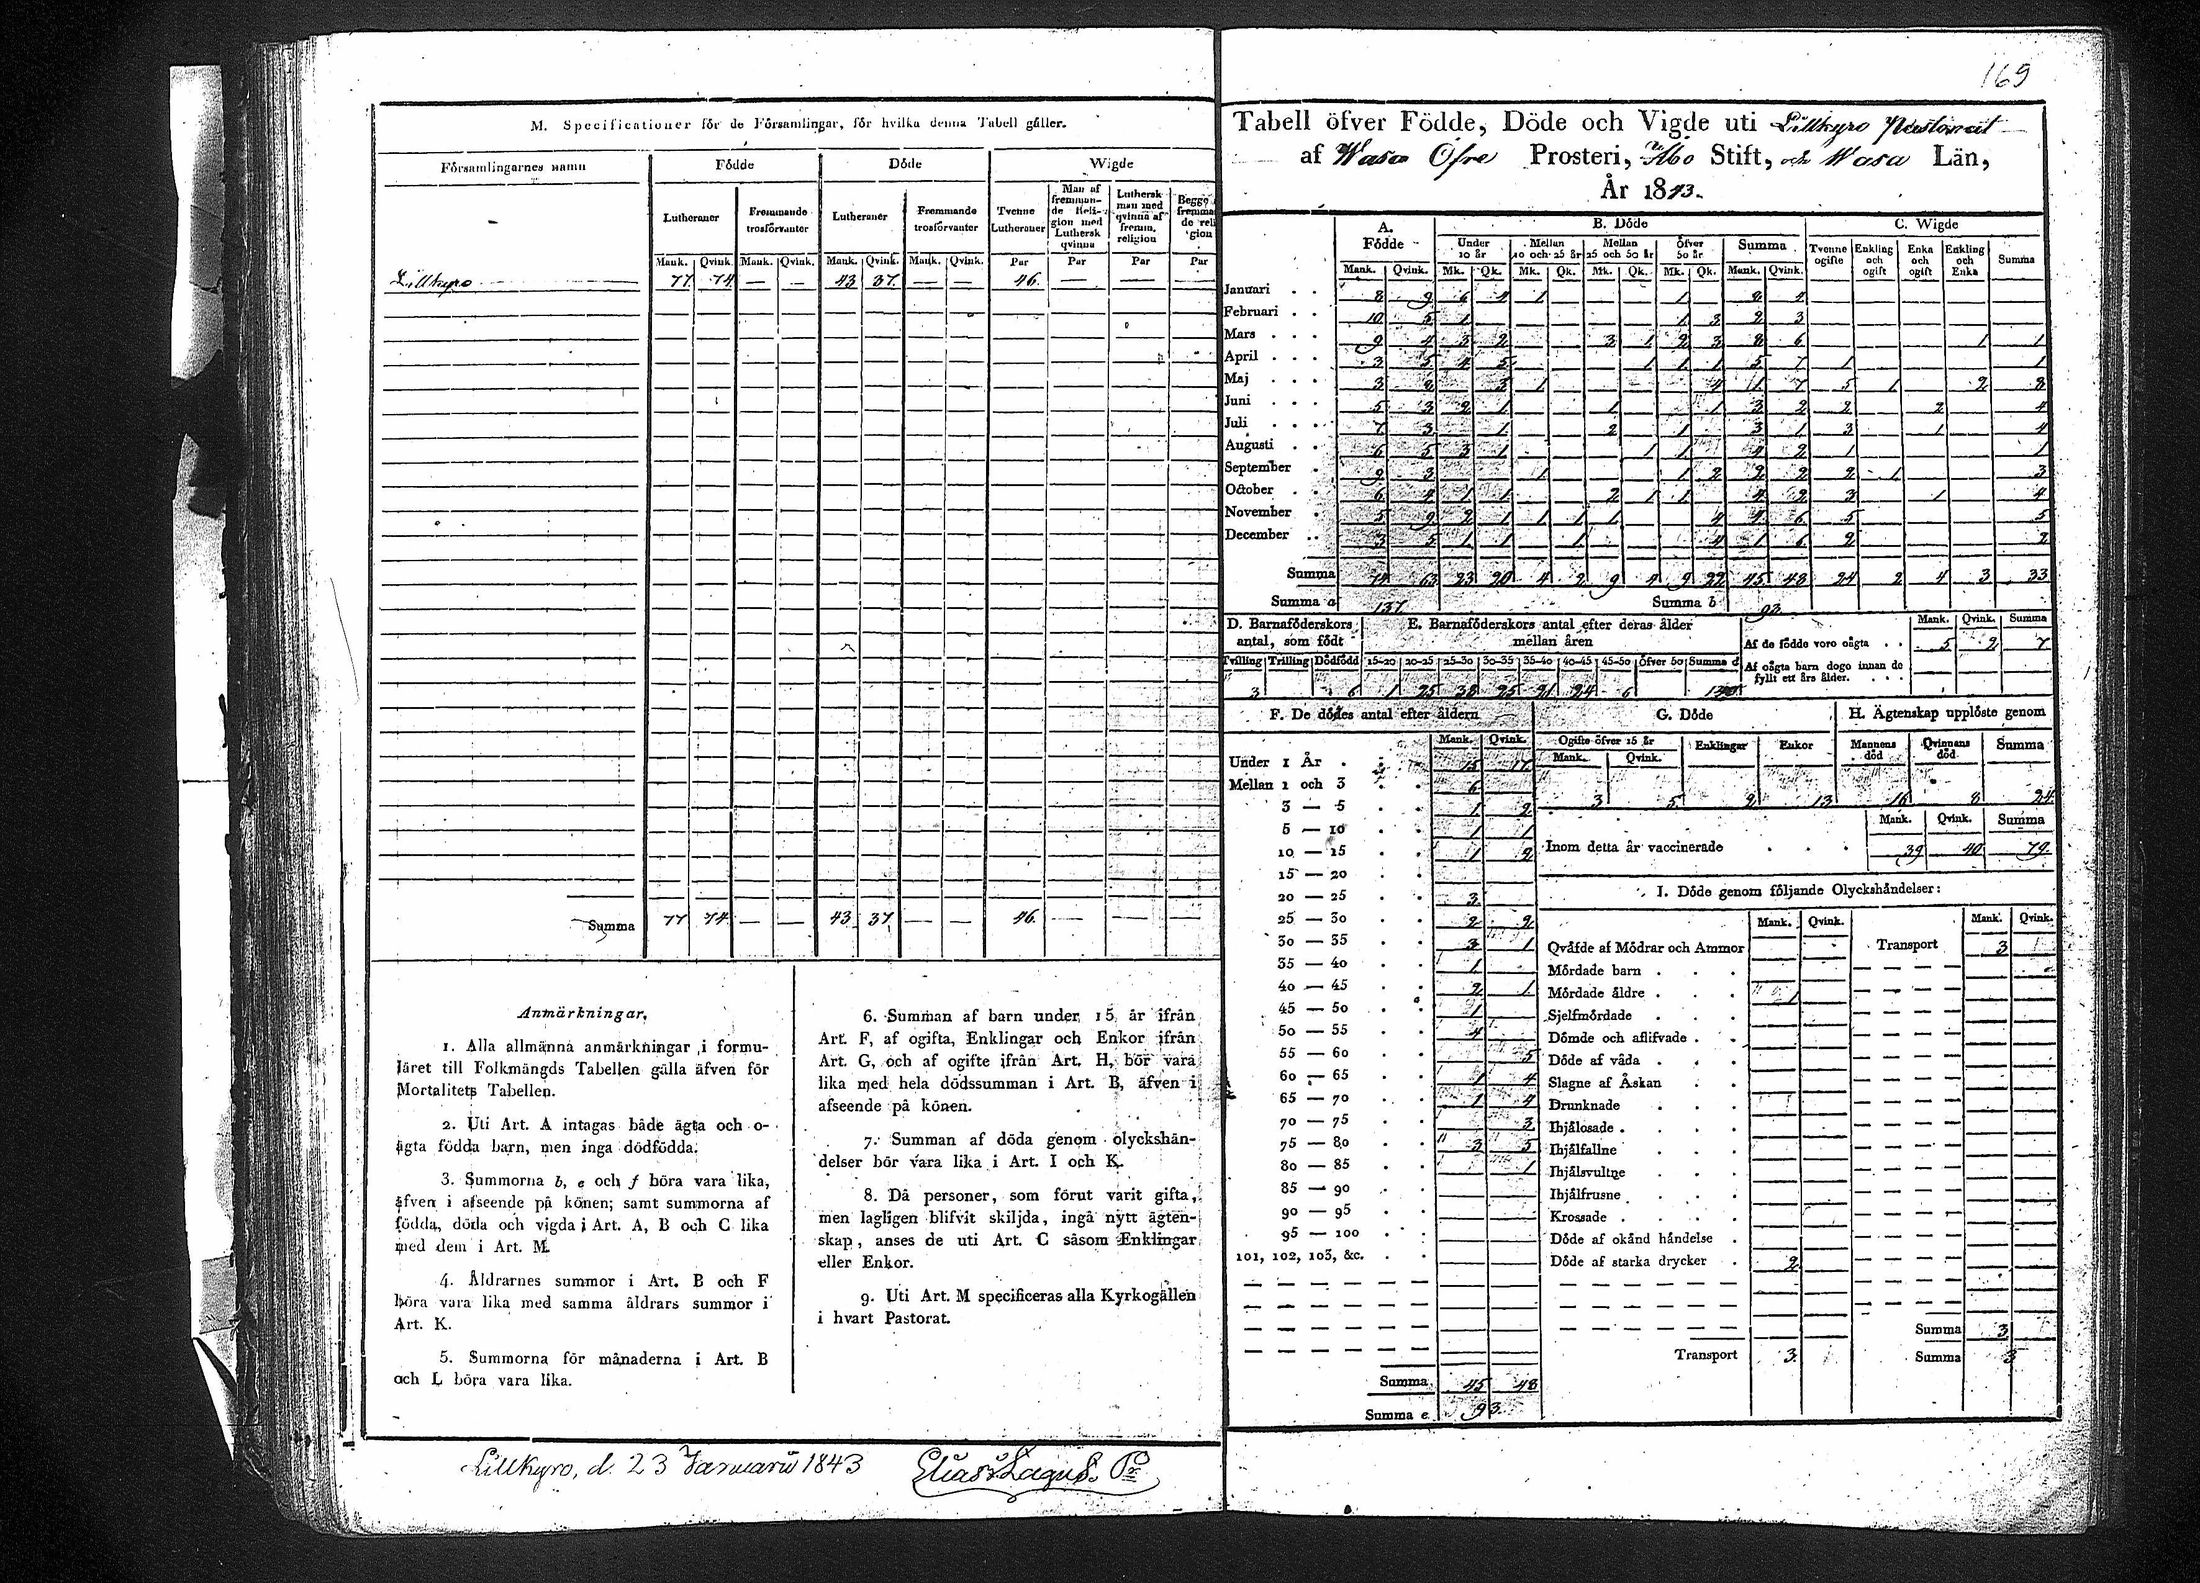 M. Specificationer för de Församlingar, för hvilka denna Tabell gäller.
Församlingarnes namn | Födde | Döde | Wigde
Lutheraner | Fremmande trosförvanter | Lutheraner | Fremmande trosförvanter | Tvenne Lutheraner | Man af fremman-de Reli-gion med Luthersk qvinna | Luthersk man med qvinna af fremm. religion | Begge fremma de reli gion
Mank. | Qvink. | Mank. | Qvink. | Mank. | Qvink. | Mank. | Qvink. | Par | Par | Par | Par
Lillkyro | 77 | 74 | — | — | 43 | 37 | — | — | 46 | — | — | —
Summa | 77 | 74 | — | — | 43 | 37 | — | — | 46 | —
Anmärkningar.
1. Alla allmänna anmärkningar i formu-
läret till Folkmängds Tabellen gälla äfven för
Mortalitets Tabellen.
2. Uti Art. A intagas både ägta och o-
ägta födda barn, men inga dödfödda.
3. Summorna b, e och f böra vara lika,
äfven i afseende på könen; samt summorna af
födda, döda och vigda i Art. A, B och C lika
med dem i Art. M.
4. Åldrarnes summor i Art. B och F
böra vara lika med samma åldrars summor i
Art. K.
5. Summorna för månaderna i Art. B
och L böra vara lika.
6. Summan af barn under 15 år ifrån
Art. F, af ogifta, Enklingar och Enkor ifrån
Art. G, och af ogifte ifrån Art. H, bör vara
lika med hela dödssumman i Art. B, äfven i
afseende på könen.
7. Summan af döda genom olyckshän-
delser bör vara lika i Art. I och K.
8. Då personer, som förut varit gifta,
men lagligen blifvit skiljda, ingå nytt ägten-
skap, anses de uti Art. C såsom Enklingar
eller Enkor.
9. Uti Art. M specificeras alla Kyrkogällen
i hvart Pastorat.
Lillkyro, d. 23 Januarii 1843 Elias Lagus. Pr
169
Tabell öfver Födde, Döde och Vigde uti Lillkyro Pastorat
af Wasa Öfre Prosteri, Åbo Stift, och Wasa Län,
År 1843.
A. Födde | B. Döde | C. Wigde
Under 10 år | Mellan 10 och 25 år | Mellan 25 och 50 år | Öfver 50 år | Summa | Tvenne ogifte | Enkling och ogift | Enka och ogift | Enkling och Enka | Summa
Mank. | Qvink. | Mk. | Qk. | Mk. | Qk. | Mk. | Qk. | Mk. | Qk. | Mank. | Qvink.
Januari | 8 | 9 | 6 | 4 | 1 | 1 | 8 | 4
Februari | 10 | 5 | 1 | 1 | 3 | 2 | 3
Mars | 9 | 4 | 3 | 2 | 3 | 1 | 2 | 3 | 8 | 6 | 1 | 1
April | 3 | 5 | 4 | 5 | 1 | 1 | 1 | 5 | 7 | 1 | 1
Maj | 3 | 8 | 3 | 1 | 4 | 1 | 7 | 5 | 1 | 2 | 8
Juni | 5 | 3 | 2 | 1 | 1 | 1 | 3 | 2 | 2 | 2 | 4
Juli | 7 | 3 | 1 | 2 | 1 | 3 | 1 | 3 | 1 | 4
Augusti | 6 | 5 | 3 | 1 | 1 | 1 | 4 | 2 | 1 | 1
September | 9 | 3 | 1 | 1 | 2 | 2 | 2 | 2 | 1 | 3
October | 6 | 4 | 1 | 1 | 2 | 1 | 1 | 4 | 2 | 3 | 1 | 4
November | 5 | 9 | 2 | 1 | 1 | 1 | 1 | 4 | 4 | 6 | 5 | 5
December | 3 | 5 | 1 | 1 | 1 | 4 | 1 | 6 | 2 | 2
Summa | 74 | 63 | 23 | 20 | 4 | 2 | 9 | 4 | 9 | 22 | 45 | 48 | 24 | 2 | 4 | 3 | 33
Summa a | 137 | Summa b | 93
D. Barnaföderskors antal, som födt | E. Barnaföderskors antal efter deras ålder mellan åren | Mank. | Qvink. | Summa
Af de födde voro oägta | 5 | 2 | 7
Tvilling | Trilling | Dödfödd | 15-20 | 20-25 | 25-30 | 30-35 | 35-40 | 40-45 | 45-50 | Öfver 50 | Summa d
Af oägta barn dogo innan de fyllt ett års ålder.
3 | 6 | 1 | 25 | 38 | 25 | 21 | 24 | 6
F. De dödes antal efter åldern | G. Döde | H. Ägtenskap upplöste genom
Mank. | Qvink. | Ogifte öfver 15 år | Enklingar | Enkor | Mannens död | Qvinnans död | Summa
Mank. | Qvink.
3 | 5 | 2 | 13 | 16 | 8 | 24
Mank. | Qvink. | Summa
Inom detta år vaccinerade | 39 | 40 | 79
Under 1 År | 15 | 17
Mellan 1 och 3 | 6
3 — 5 | 1 | 2
5 — 10 | 1 | 1
10 — 15 | 1 | 2
15 — 20
20 — 25 | 3
25 — 30 | 2 | 2
30 — 35 | 3 | 1
35 — 40 | 1
40 — 45 | 2 | 1
45 — 50 | 1
50 — 55 | 4
55 — 60 | 5
60 — 65 | 1 | 4
65 — 70 | 1 | 4
70 — 75 | 3
75 — 80 | 3 | 5
80 — 85 | 1
85 — 90
90 — 95
95 — 100
101, 102, 103, &c.
Summa | 45 | 48
Summa e | 93
I. Döde genom följande Olyckshändelser:
Mank. | Qvink. | Mank. | Qvink.
Qväfde af Mödrar och Ammor | Transport | 3
Mördade barn
Mördade äldre | 1
Sjelfmördade
Dömde och aflifvade
Döde af våda
Slagne af Åskan
Drunknade
Ihjälosade
Ihjälfallne
Ihjälsvultne
Ihjälfrusne
Krossade
Döde af okänd händelse
Döde af starka drycker | 2
Summa | 3
Transport | 3 | Summa | 3